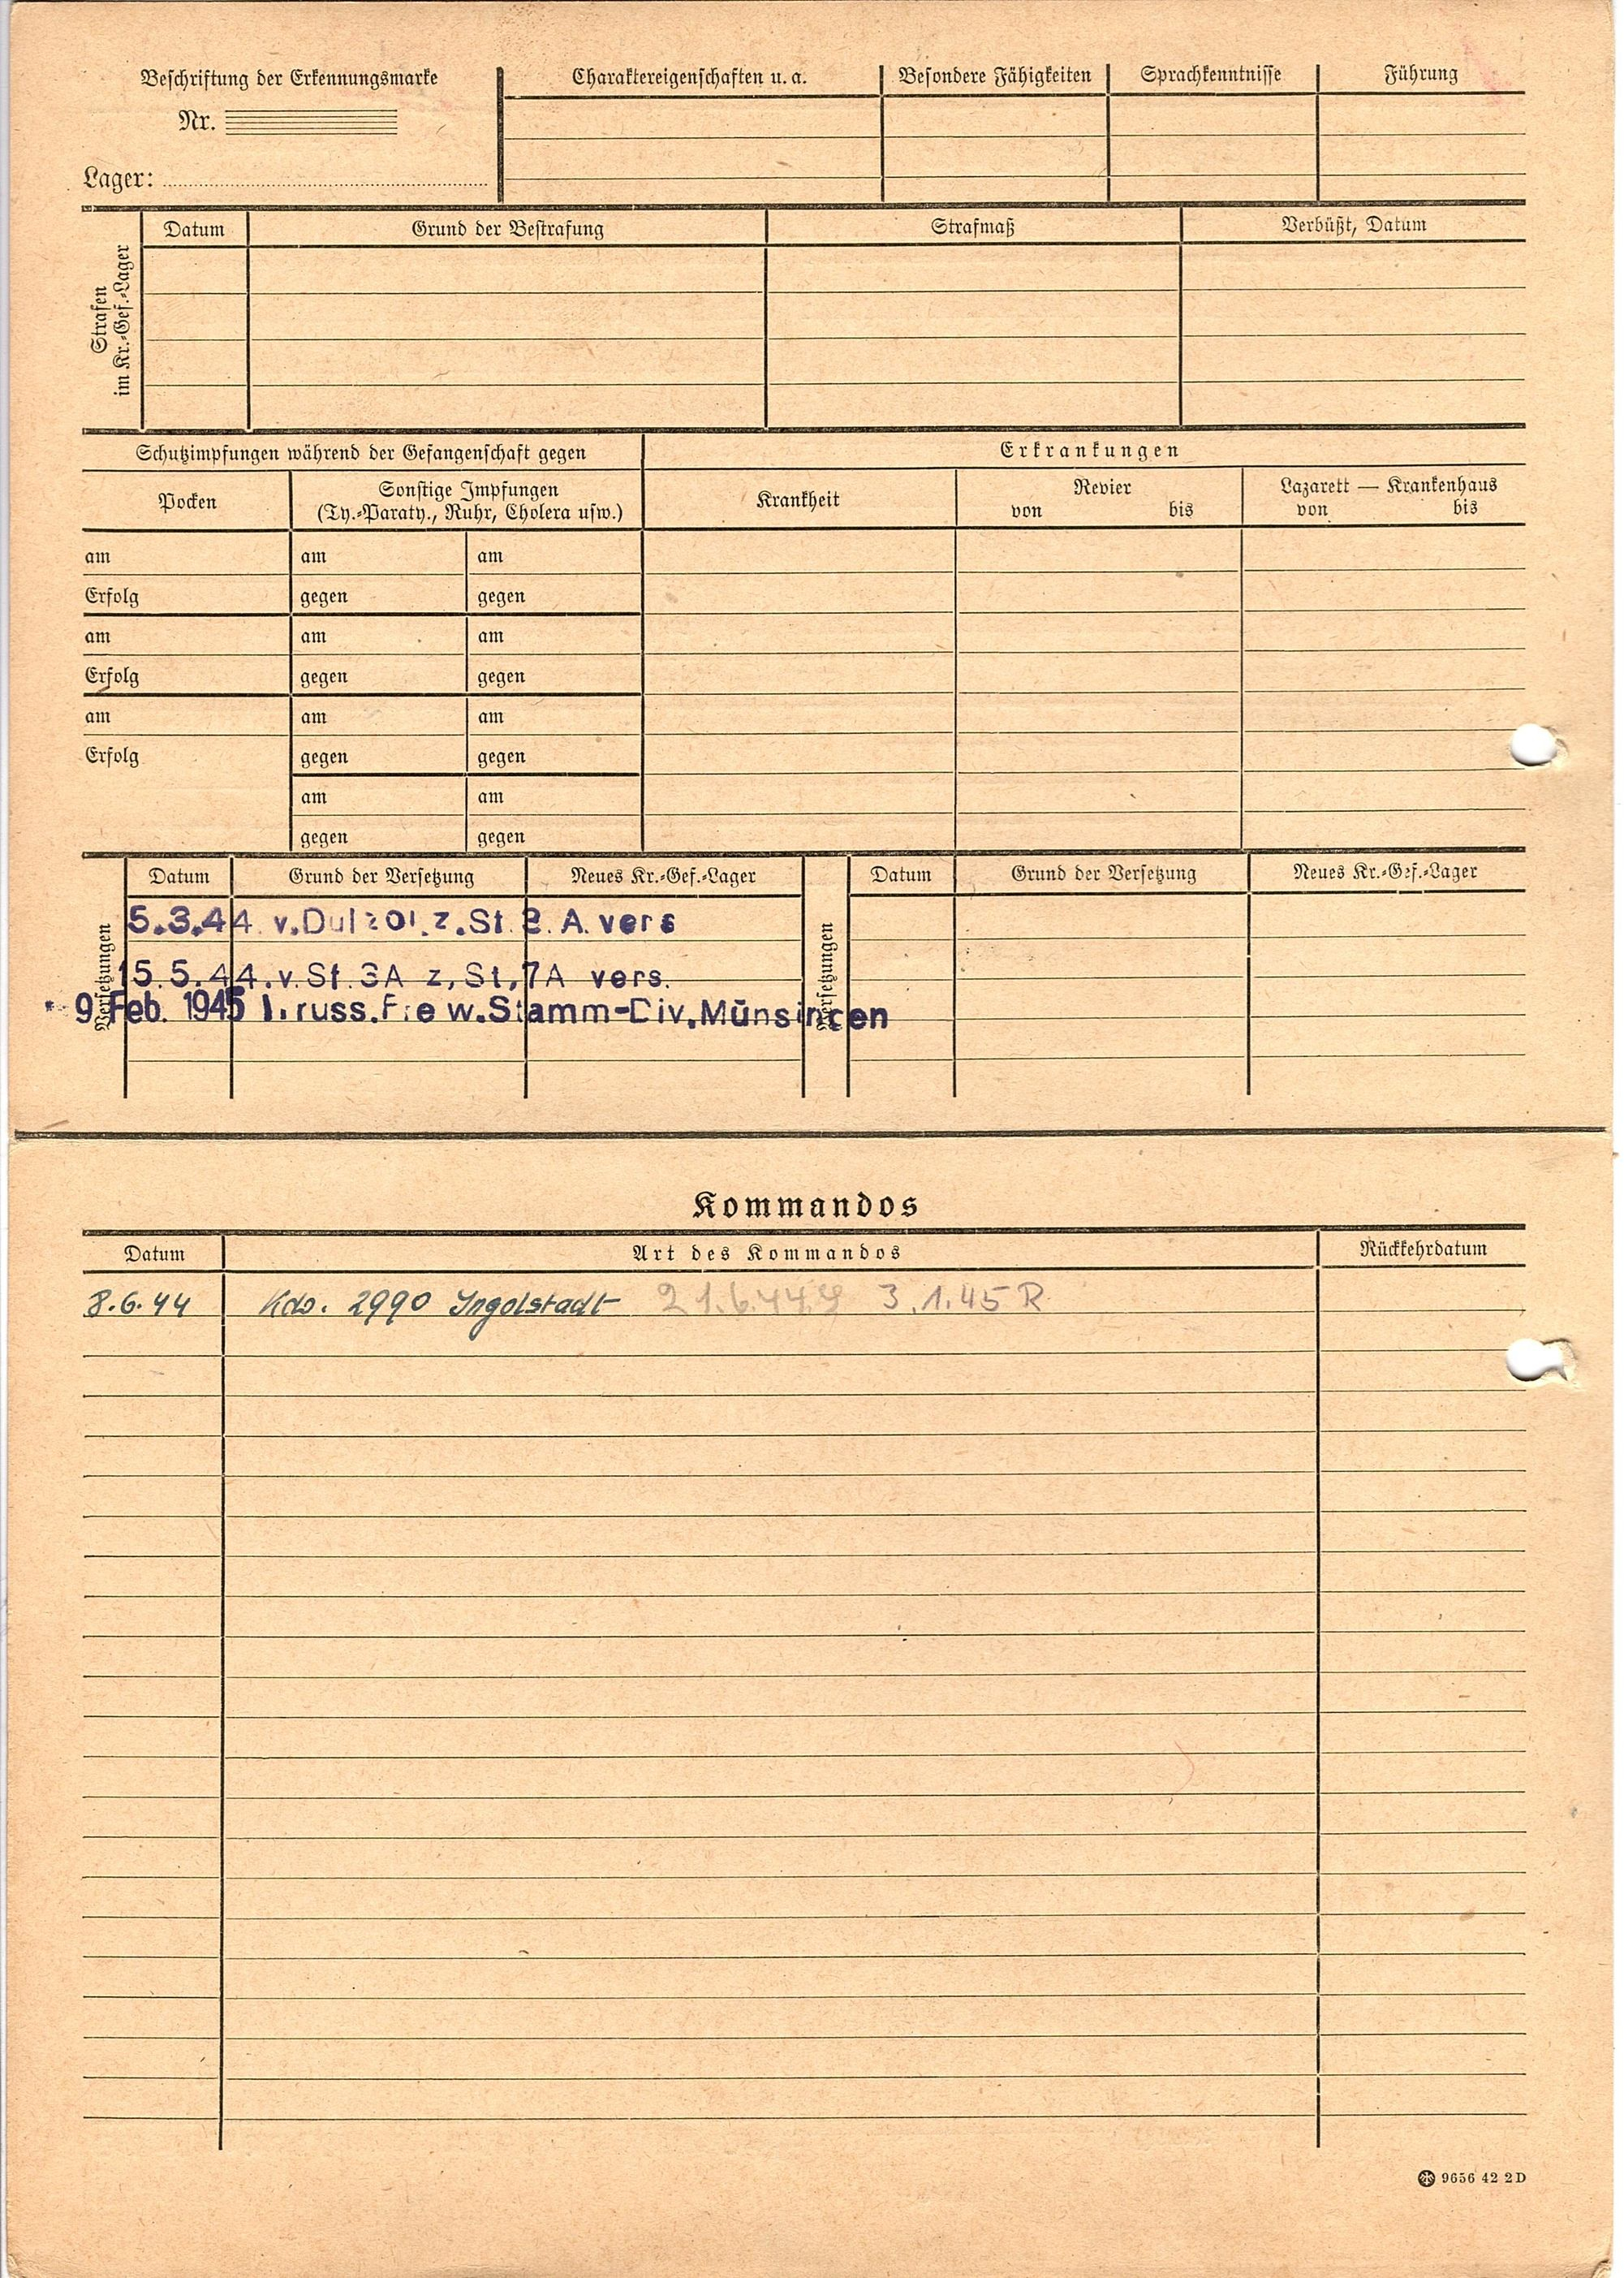 Beschriftung der Erkennungsmarke
Nr.
Lager:
Charaktereigenschaften u. a. Besondere Fähigkeiten Sprachkenntnisse Führung
Strafen
im Kr.-Gef.-Lager
Datum Grund der Bestrafung Strafmaß Verbüßt, Datum
Schutzimpfungen während der Gefangenschaft gegen
Erkrankungen
Pocken
Sonstige Impfungen
(Ty.-Paraty., Ruhr, Cholera usw.)
Krankheit
Revier
von bis
Lazarett — Krankenhaus
von bis
am am am
Erfolg gegen gegen
am am am
Erfolg gegen gegen
am am am
Erfolg gegen gegen
am am
gegen gegen
Versetzungen
Datum Grund der Versetzung Neues Kr.-Gef.-Lager
5.3.44 z. St. A. vers
15.5.44. v. St. 3A z, St, 7A vers.
9. Feb. 1945 russ. Stamm-Div. Münsingen
Versetzungen
Datum Grund der Versetzung Neues Kr.-Gef.-Lager
Kommandos
Datum Art des Kommandos Rückkehrdatum
8.6.44 Kdo. 2990 Ingolstadt 21.6.44 3.1.45 R
9656 42 2D